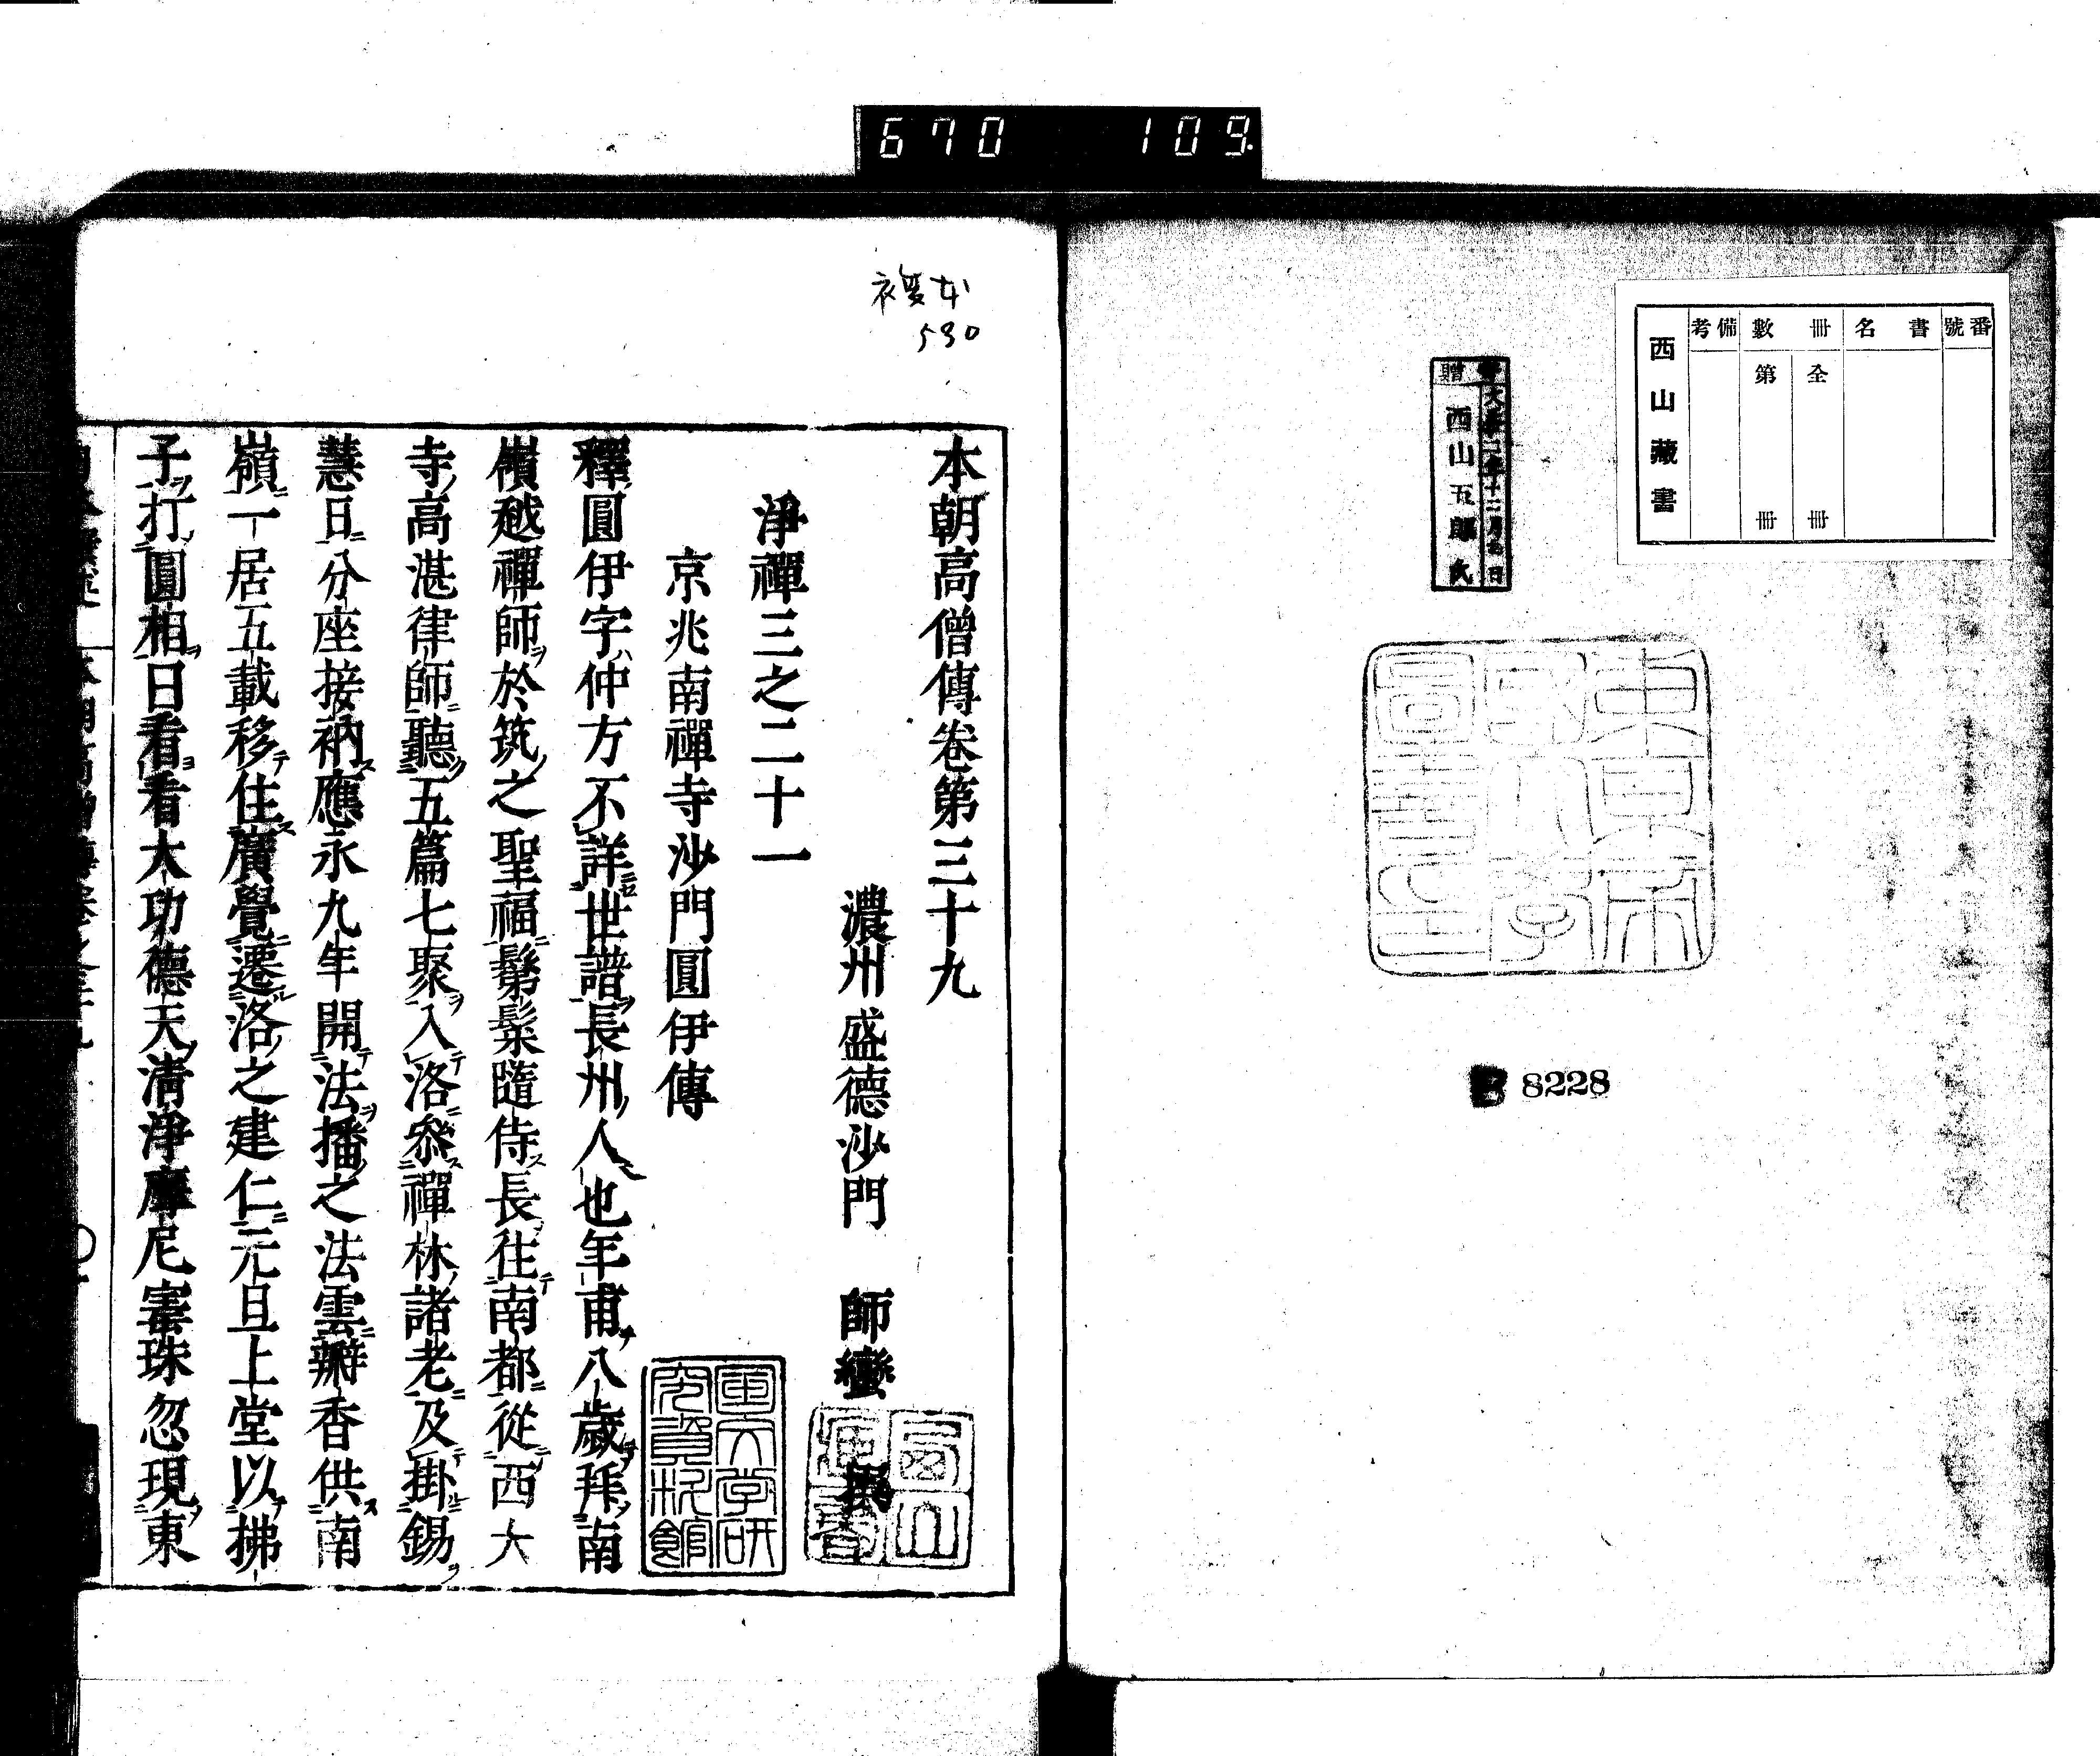 670 109
番號
書名
冊數
全 冊
第 冊
備考
西山藏書
贈
西山五郎氏
東京帝國大學圖書印
8228
複本
530
本朝高僧傳卷第三十九
濃州盛德沙門 師蠻 撰
淨禪三之二十一
京兆南禪寺沙門圓伊傳
釋圓伊字仲方不詳世譜長州人也年甫八歲拜南
嶺越禪師於筑之聖福鬀髪隨侍長往南都從西大
寺高湛律師聽五篇七聚入洛參禪林諸老及掛錫
慧日分座接衲應永九年開法播之法雲瓣香供南
嶺一居五載移住廣覺遷洛之建仁元旦上堂以拂
子打圓相曰看看大功德天清淨摩尼寚珠忽現東
國文学研究資料館